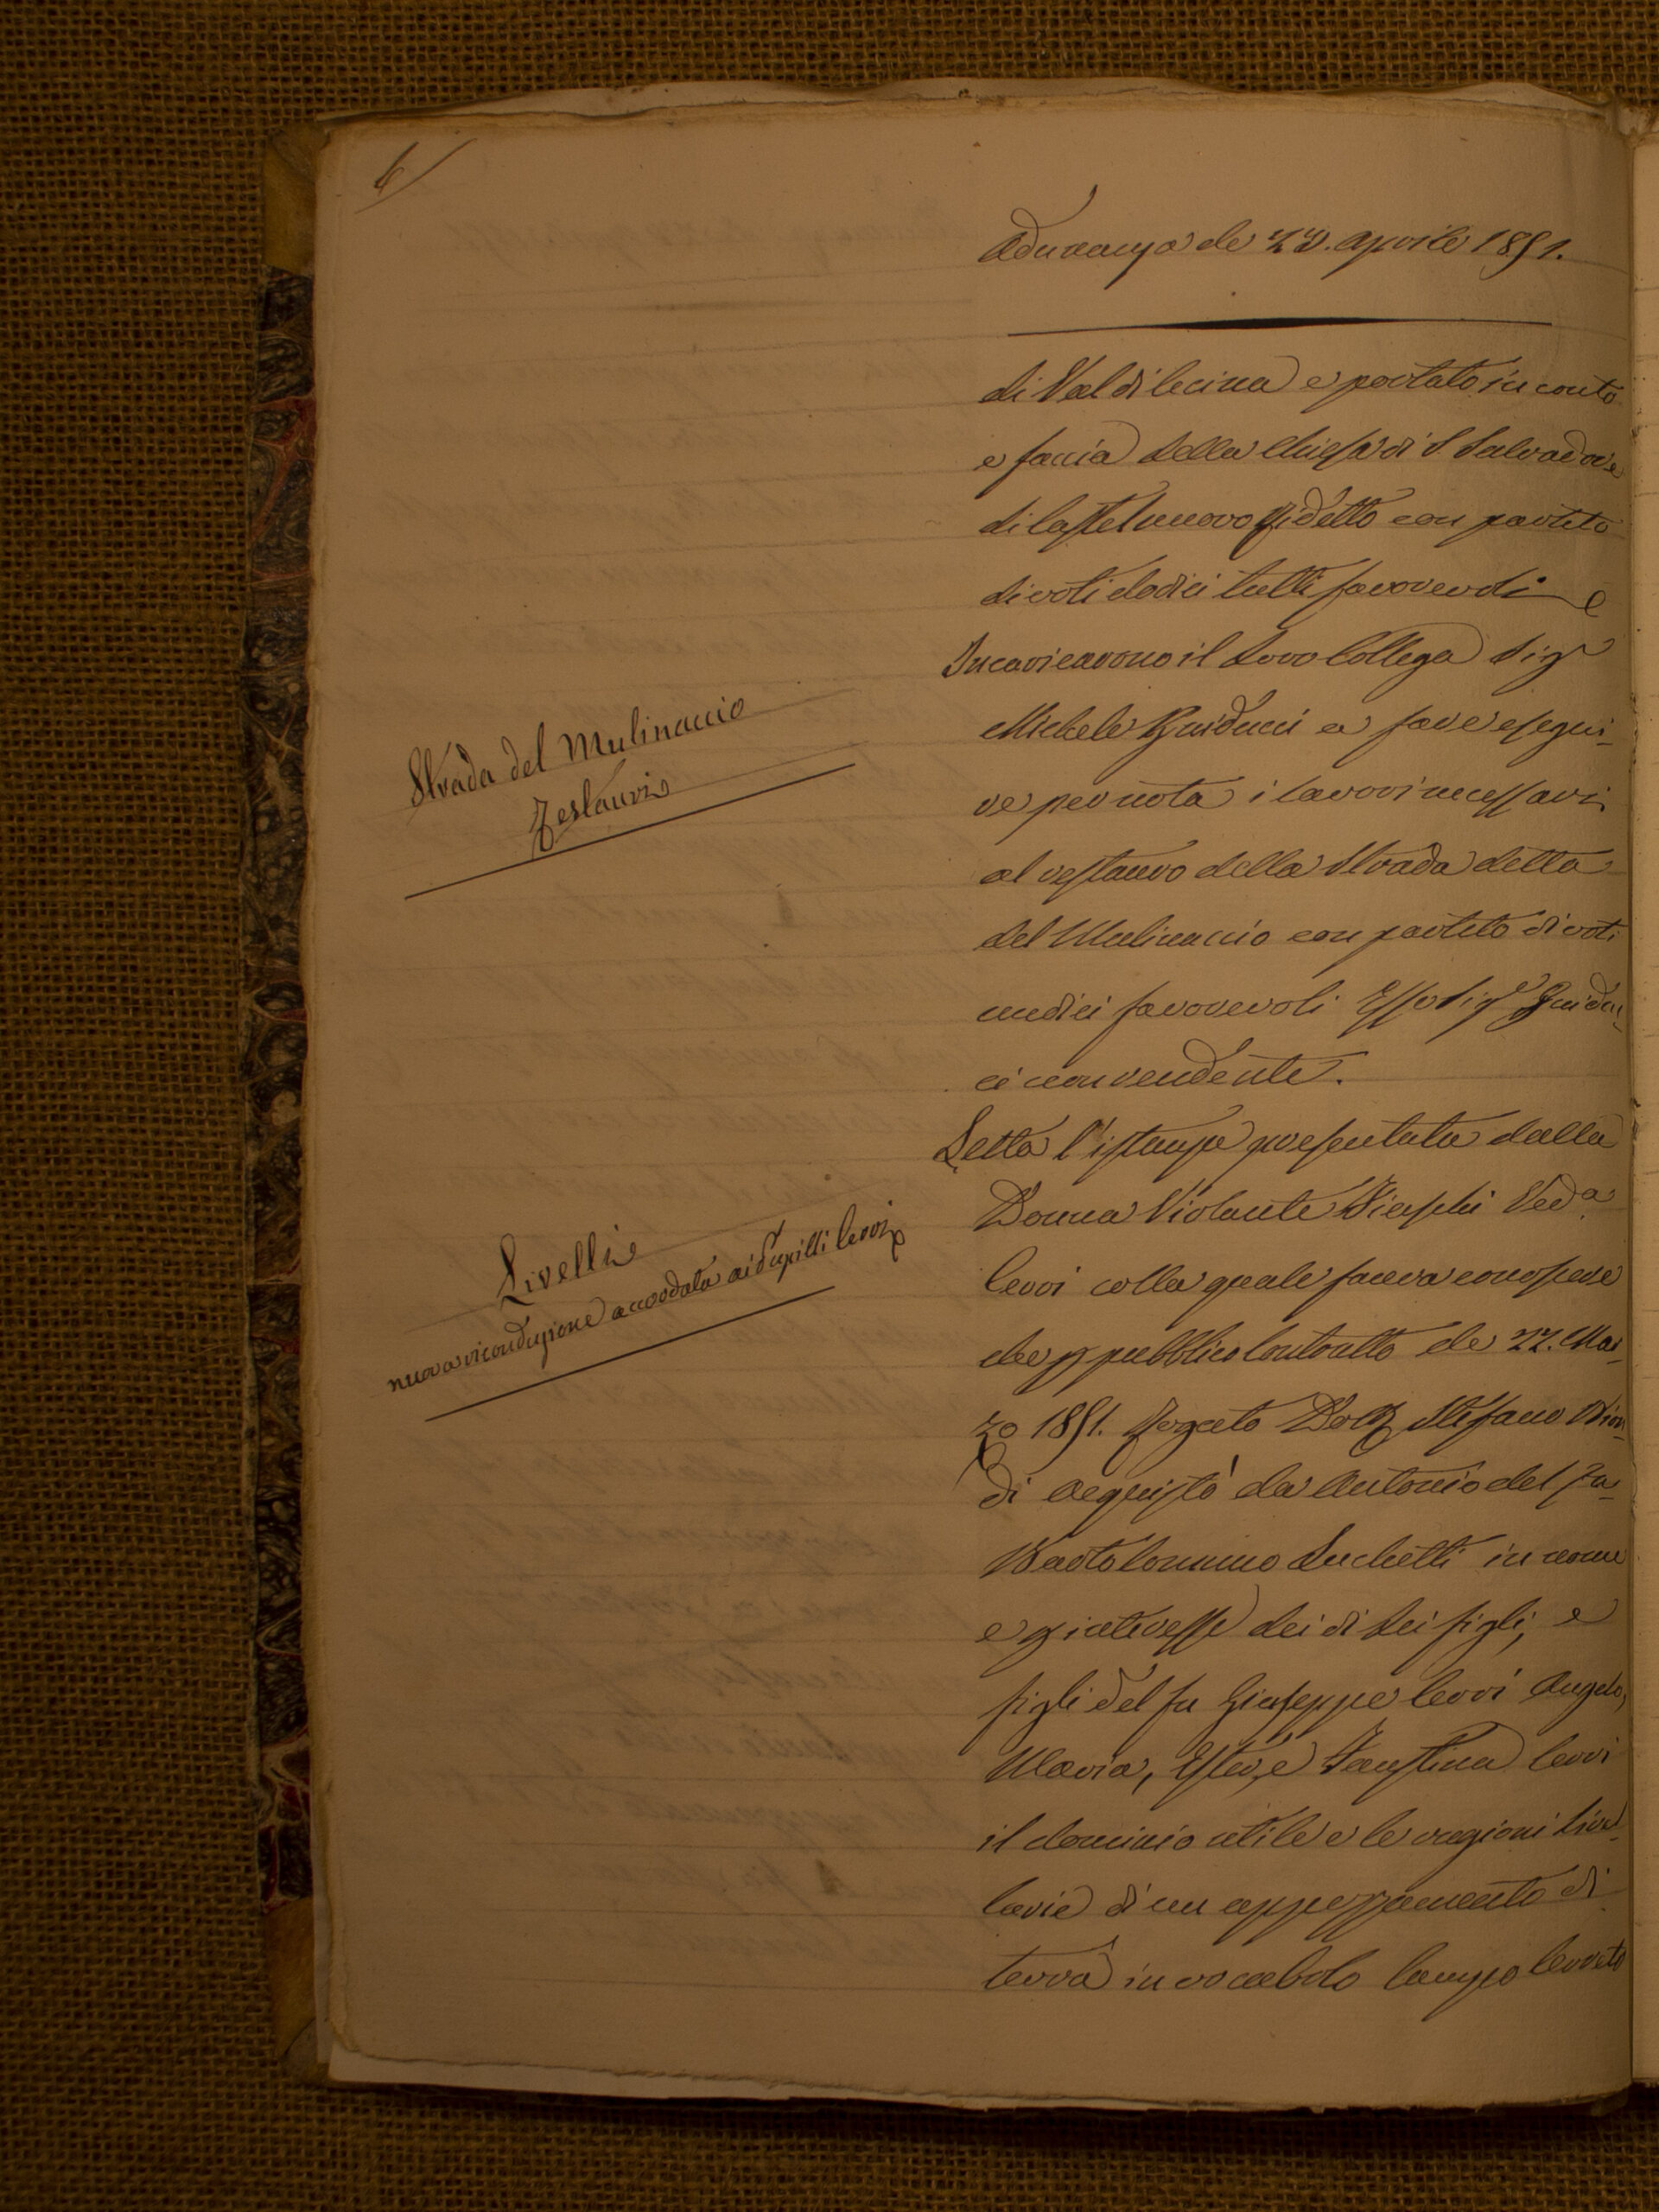 6
Adunanza de 28. Aprile 1851.
di Val di Cecina e portato in conto
e faccia della Chiesa di S. Salvadore
di Castelnuovo pidetto con partito
di voti dodici tutti favorevoli e
Strada del Mulinaccio
Restauri
Incaricarono il Loro Collega Sig.r
Michele Guiducci a fare esegui-
re per nota i lavori necessari
al restauro della Strada detta
del Mulinaccio con partito di voti
undici favorevoli Esso Sig.e Guiduc-
ci non rendente.
Livelli
nuova riconduzione accordata ai Pupilli Cerri
Letta l'istanza presentata dalla
Donna Violante Bieschi Ved.a
Cerri colla quale faceva conoscere
che p pubblico Contratto de 22. Mar-
zo 1851. Rogato Dott Stefano Bion-
di acquistò da Antonio del fu
Bartolommeo Luchetti in nome
e p interesse dei di Lei figli, e
figli del fu Giuseppe Cerri Angelo,
Maria, Ester, e Faustina Cerri
il dominio utile e le ragioni Livel-
larie di un appezzamento di
terra in vocabolo Campo Cerreto